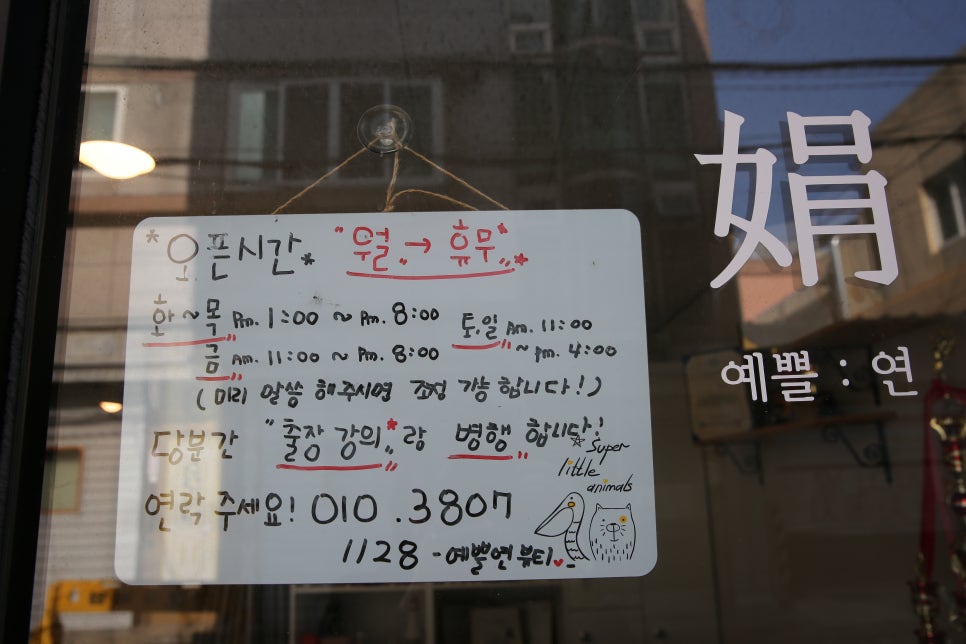 *오픈시간* "월" → 휴무"*
화~목 Pm. 1:00 ~ Pm. 8:00
금 Am. 11:00 ~ Pm. 8:00
토,일 Am. 11:00
~ pm. 4:00
(미리 말씀 해주시면 조정 가능 합니다!)
당분간 "출장 강의*"랑 병행" 합니다!
연락 주세요! 010.3807
1128 -예쁠연뷰티♥-
Super
little
animals
娟
예쁠 : 연